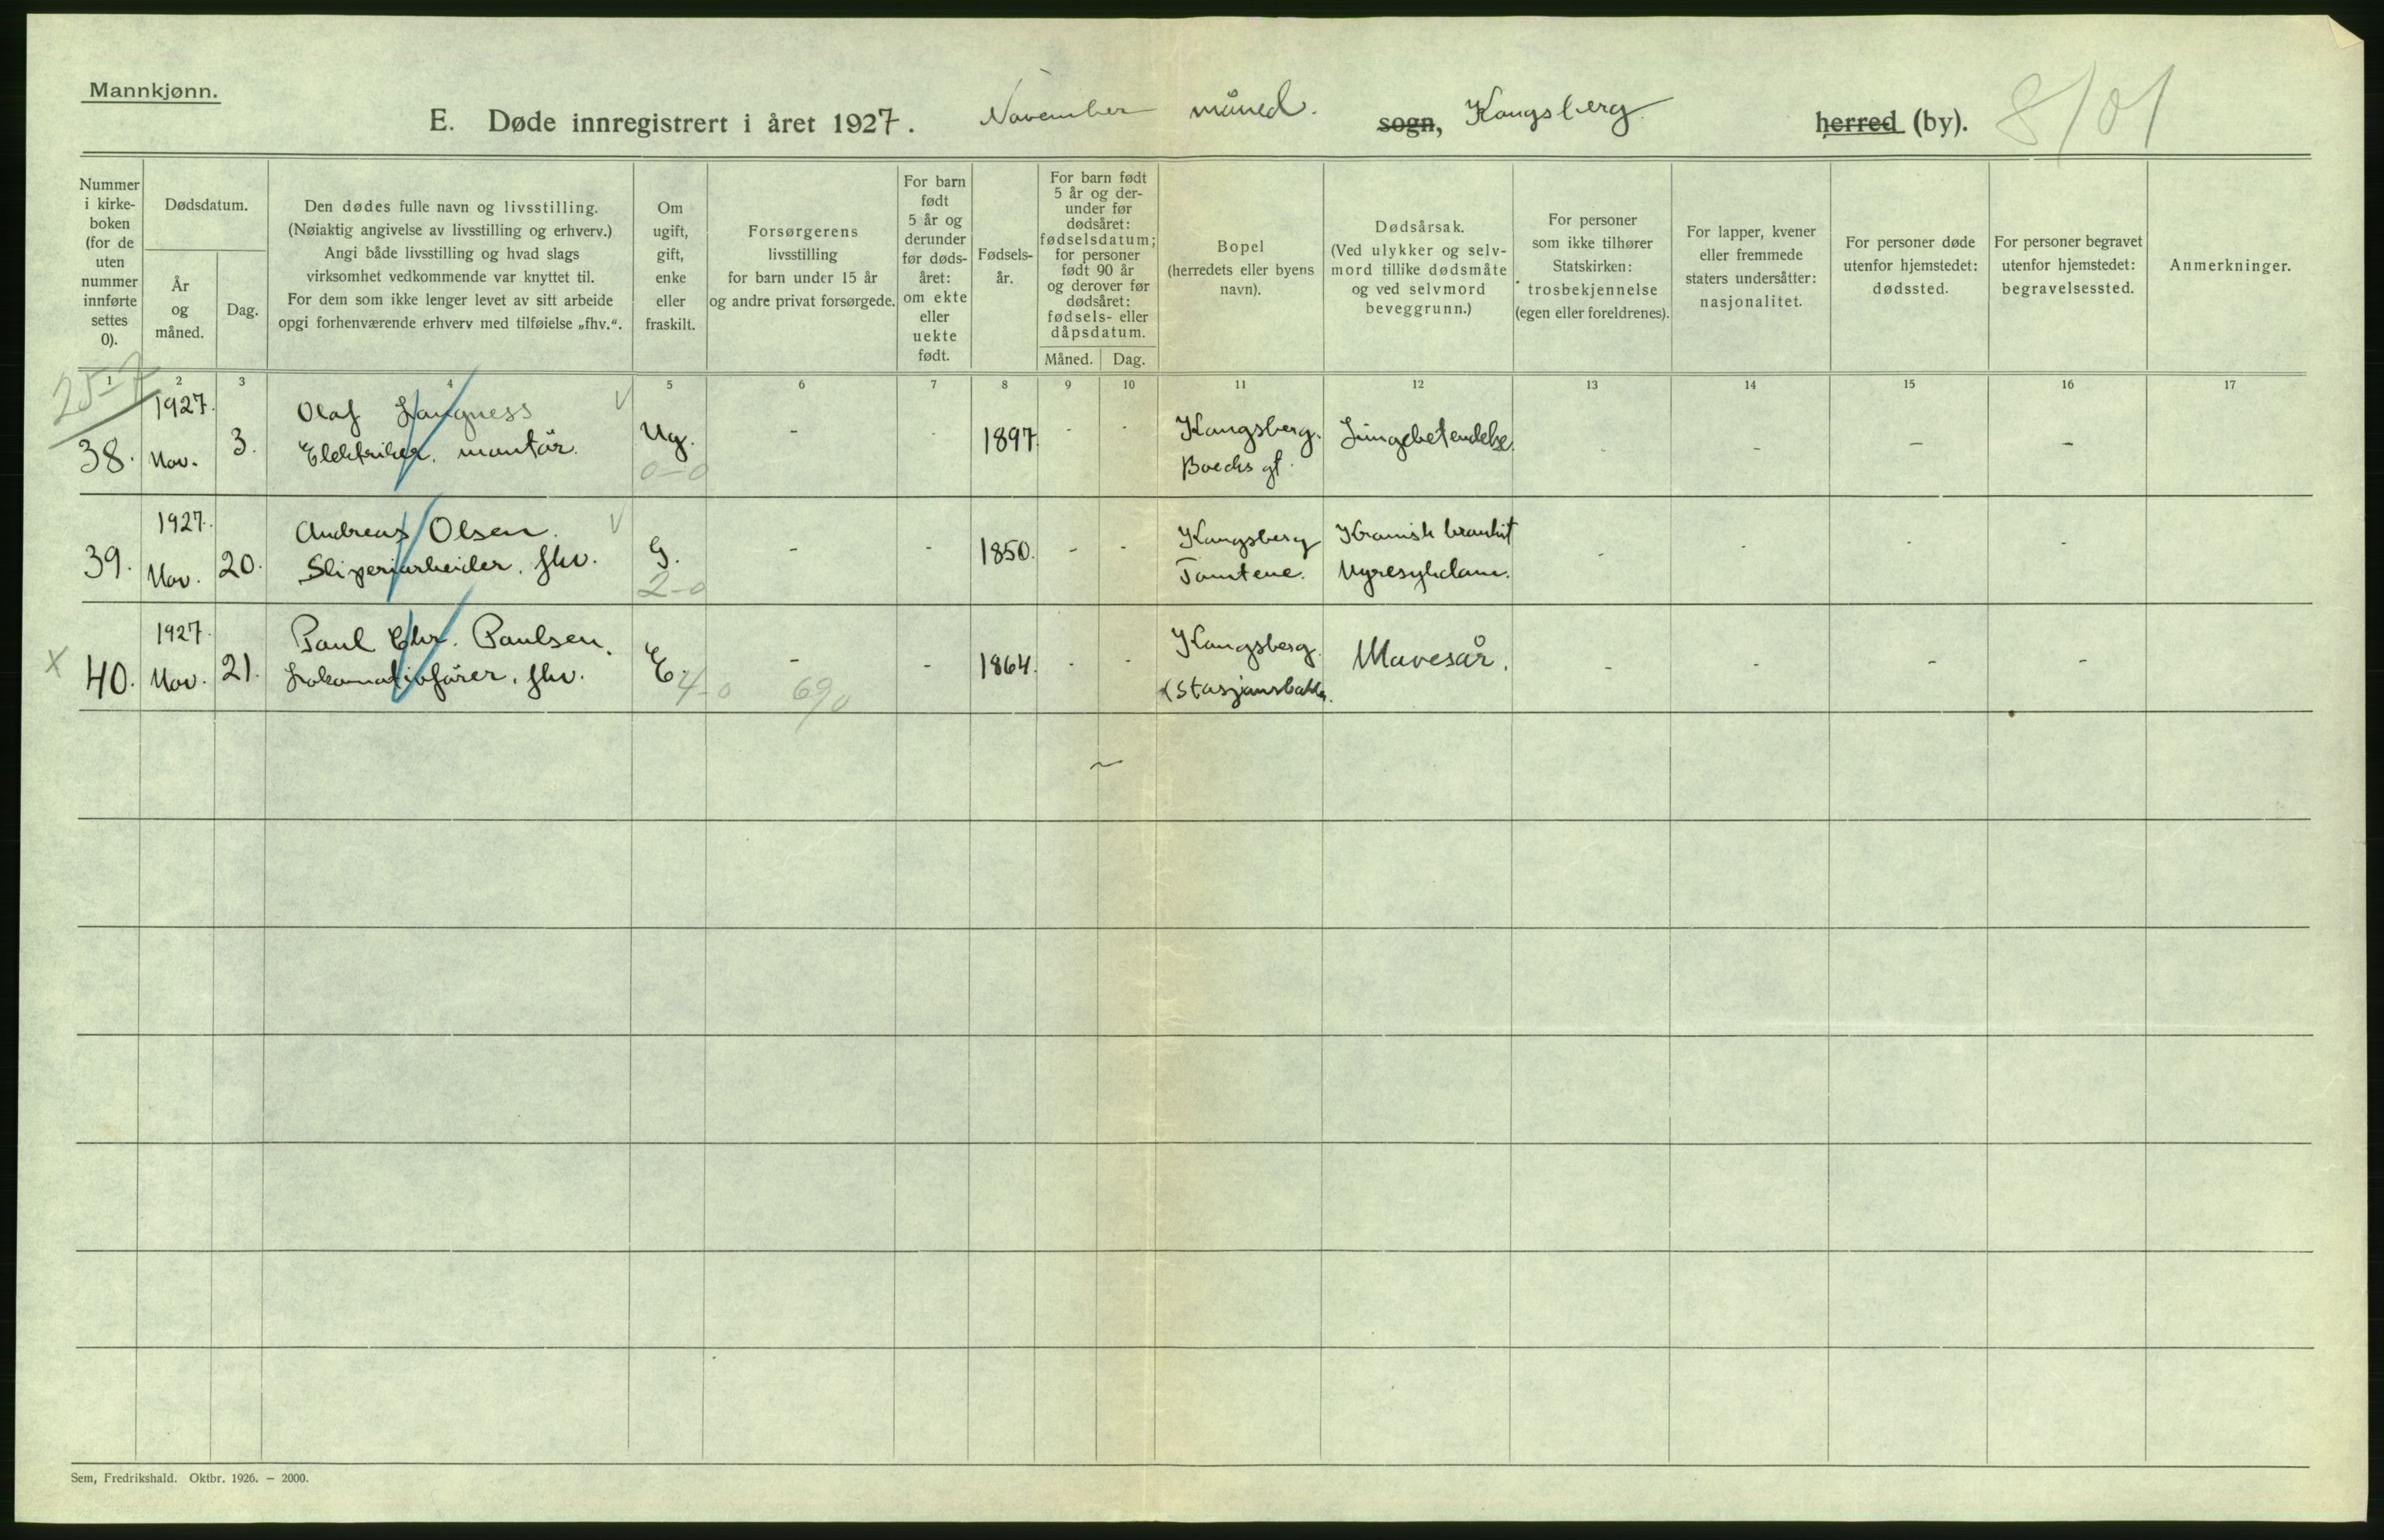 Mannkjønn.
E. Døde innregistrert i året 1927. November måned. sogn, Kongsberg herred (by). 8/01
Nummer i kirke-boken (for de uten nummer innførte settes 0).
Dødsdatum.
År og måned.
Dag.
Den dødes fulle navn og livsstilling.
(Nøiaktig angivelse av livsstilling og erhverv.)
Angi både livsstilling og hvad slags
virksomhet vedkommende var knyttet til.
For dem som ikke lenger levet av sitt arbeide
opgi forhenværende erhverv med tilføielse „fhv.“.
Om ugift, gift, enke eller fraskilt.
Forsørgerens
livsstilling
for barn under 15 år
og andre privat forsørgede.
For barn født 5 år og derunder før døds-året: om ekte eller uekte født.
Fødsels-år.
For barn født 5 år og der-under før dødsåret: fødselsdatum; for personer født 90 år og derover før dødsåret: fødsels- eller dåpsdatum.
Måned. Dag.
Bopel
(herredets eller byens
navn).
Dødsårsak.
(Ved ulykker og selv-
mord tillike dødsmåte
og ved selvmord
beveggrunn.)
For personer
som ikke tilhører
Statskirken:
trosbekjennelse
(egen eller foreldrenes).
For lapper, kvener
eller fremmede
staters undersåtter:
nasjonalitet.
For personer døde
utenfor hjemstedet:
dødssted.
For personer begravet
utenfor hjemstedet:
begravelsessted.
Anmerkninger.
1 2 3 4 5 6 7 8 9 10 11 12 13 14 15 16 17
25-7
38. 1927. Nov. 3. Olaf Langness V Ug. - - 1897. - - Kongsberg. Lungebetendelse. - - - -
Elektriker, montör. 0-0 Boecks gt.
39. 1927. Nov. 20. Andreas Olsen. V G. - - 1850. - - Kongsberg Kronisk bronkit - - - -
Sliperiarbeider, fhv. 2-0 Tomtene. Nyresykdom.
X 40. 1927. Nov. 21. Paul Chr. Paulsen. E. - - 1864. - - Kongsberg. Mavesår. - - - -
Lokomotivfører, fhv. 4-0 69/0 (Stasjonsbakk.
Sem, Fredrikshald. Oktbr. 1926. — 2000.